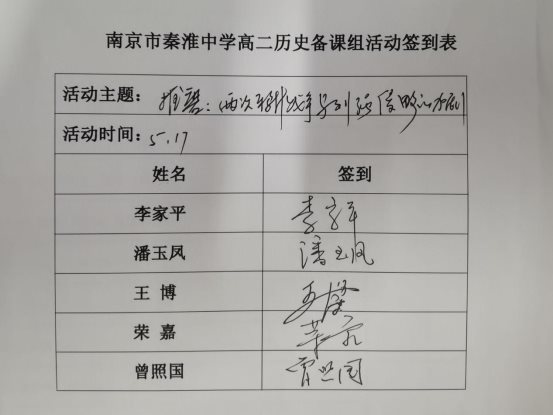 南京市秦淮中学高二历史备课组活动签到表
活动主题： 推磨：两次鸦片战争与列强侵略的加剧
活动时间： 5.17
姓名 签到
李家平 李家平
潘玉凤 潘玉凤
王 博
荣 嘉
曾照国 曾照国